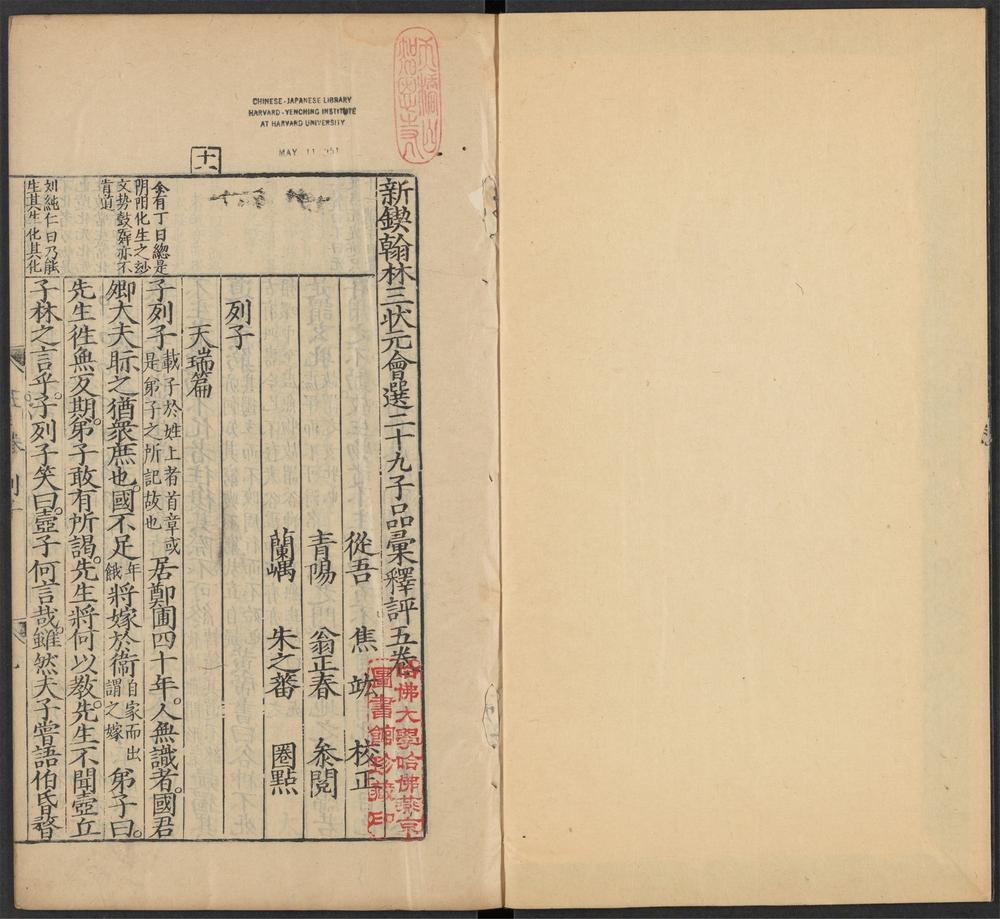 CHINESE-JAPANESE LIBRARY
HARVARD-YENCHING INSTITUTE
AT HARVARD UNIVERSITY
MAY 11
十六
新鍥翰林三狀元會選二十九子品彙釋評五卷
從吾 焦 竑 校正
青陽 翁正春 叅閱
蘭嵎 朱之蕃 圈點
哈佛大學哈佛燕京
圖書館珍藏印
列子
天瑞篇
余有丁曰總是
阴阳化生之玅
文势鼓舞亦不
肯道
刘純仁曰乃能
生其生化其化
子列子載子於姓上者首章或是弟子之所記故也居鄭圃四十年。人無識者。國君
卿大夫眎之猶衆庶也。國不足年饑將嫁於衞自家而出謂之嫁弟子曰。
先生徃無反期。弟子敢有所謁。先生將何以教。先生不聞壺丘
子林之言乎。子列子笑曰。壺子何言哉。雖然夫子嘗語伯昏瞀